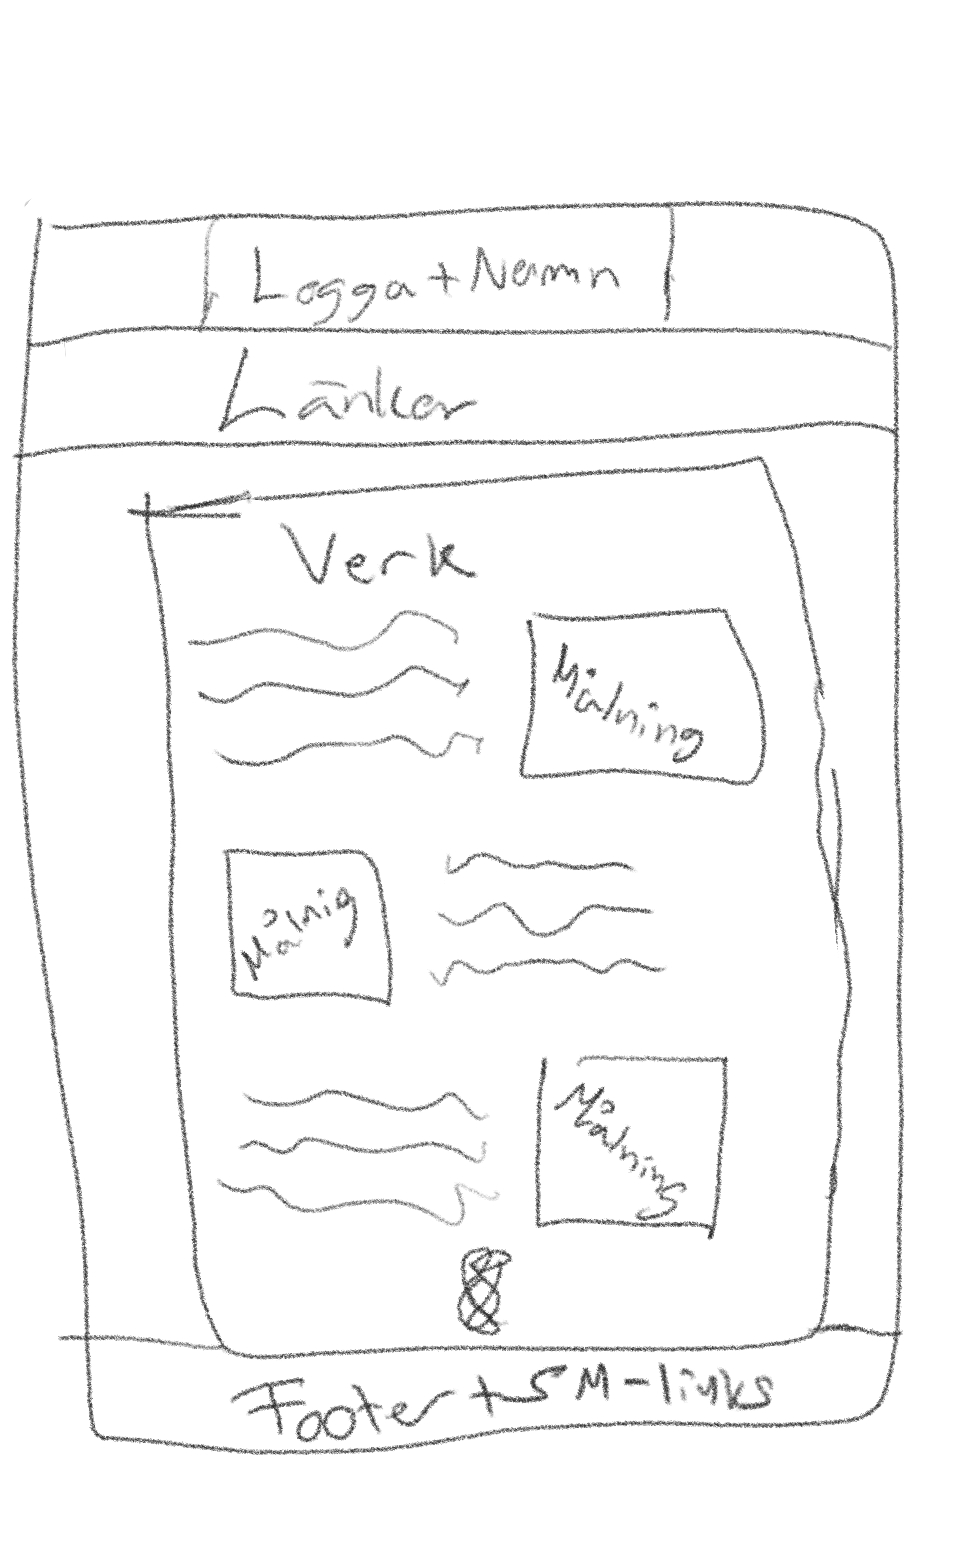 Logga + Namn
Länkar
Verk
Målning
Målnig
Målning
Footer + SM-links